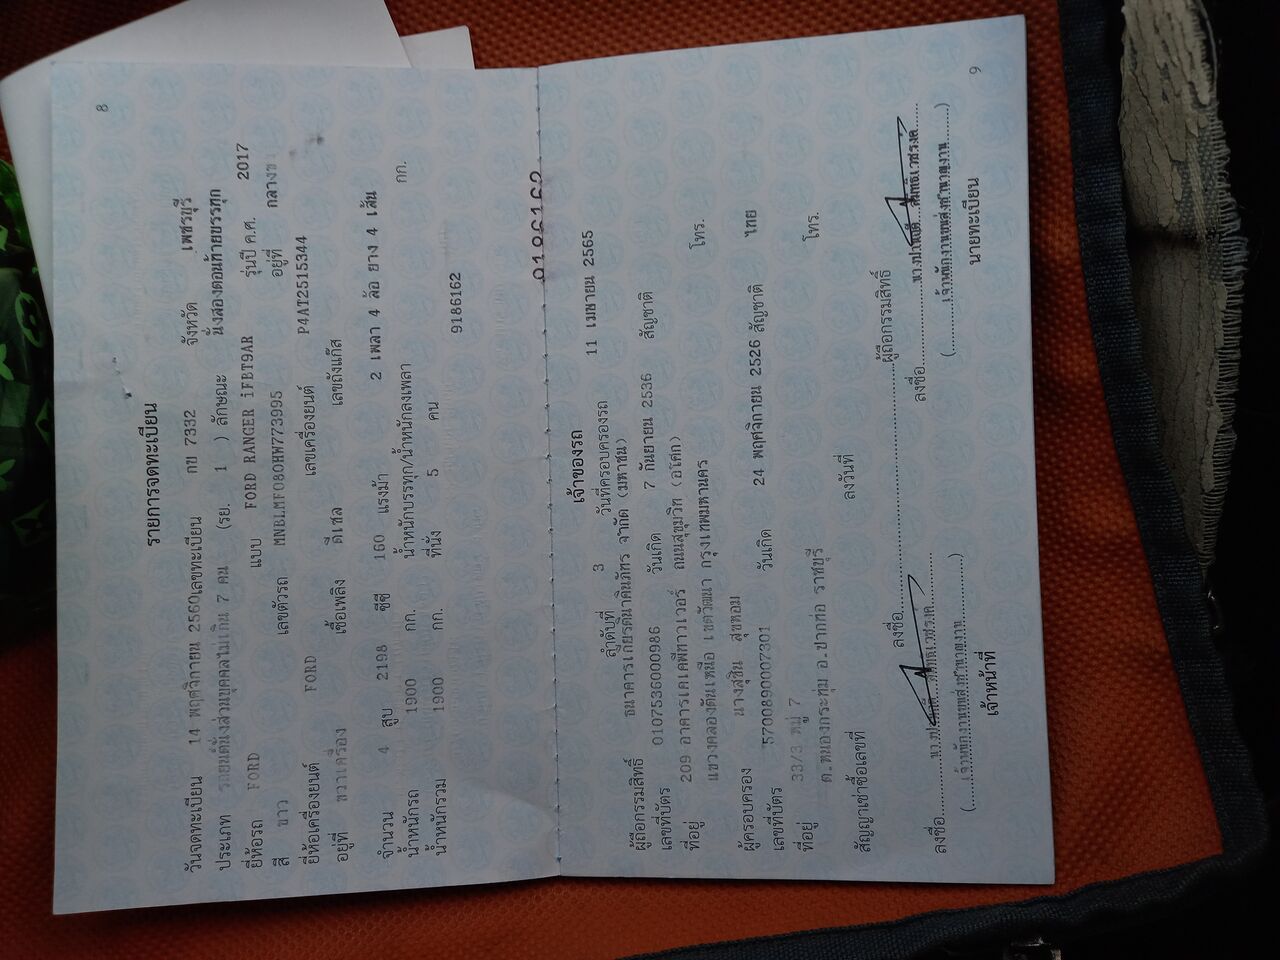 8
รายการจดทะเบียน
วันจดทะเบียน 14 พฤศจิกายน 2560 เลขทะเบียน กข 7332 จังหวัด เพชรบุรี
ประเภท รถยนต์นั่งส่วนบุคคลไม่เกิน 7 คน (รย. 1 ) ลักษณะ นั่งสองตอนท้ายบรรทุก
ยี่ห้อรถ FORD แบบ FORD RANGER iFBT9AR รุ่นปี ค.ศ. 2017
สี ขาว เลขตัวรถ MNBLMFO8OHW773995 อยู่ที่
ยี่ห้อเครื่องยนต์ FORD เลขเครื่องยนต์ P4AT2515344
อยู่ที่ ขวาเครื่อง เชื้อเพลิง ดีเซล เลขถังแก๊ส
จำนวน 4 สูบ 2198 ซีซี 160 แรงม้า 2 เพลา 4 ล้อ ยาง 4 เส้น
น้ำหนักรถ 1900 กก. น้ำหนักบรรทุก/น้ำหนักลงเพลา กก.
น้ำหนักรวม 1900 กก. ที่นั่ง 5 คน
9186162
เจ้าของรถ
ลำดับที่ 3 วันที่ครอบครองรถ 11 เมษายน 2565
ผู้ถือกรรมสิทธิ์ ธนาคารเกียรตินาคินภัทร จำกัด (มหาชน)
เลขที่บัตร 0107536000986 วันเกิด 7 กันยายน 2536 สัญชาติ
ที่อยู่ 209 อาคารเคเคพีทาวเวอร์ ถนนสุขุมวิท (อโศก) โทร.
แขวงคลองตันเหนือ เขตวัฒนา กรุงเทพมหานคร
ผู้ครอบครอง นางสุชิน สุขหอม
เลขที่บัตร 570089007301 วันเกิด 24 พฤศจิกายน 2526 สัญชาติ ไทย
ที่อยู่ 33/3 หมู่ 7 โทร.
ต.หนองกระทุ่ม อ.ปากท่อ ราชบุรี
สัญญาเช่าซื้อเลขที่ ลงวันที่
ลงชื่อ ผู้ถือกรรมสิทธิ์
ลงชื่อ ลงชื่อ
(เจ้าพนักงานขนส่งชำนาญงาน) (เจ้าพนักงานขนส่งชำนาญงาน)
เจ้าหน้าที่ นายทะเบียน
9